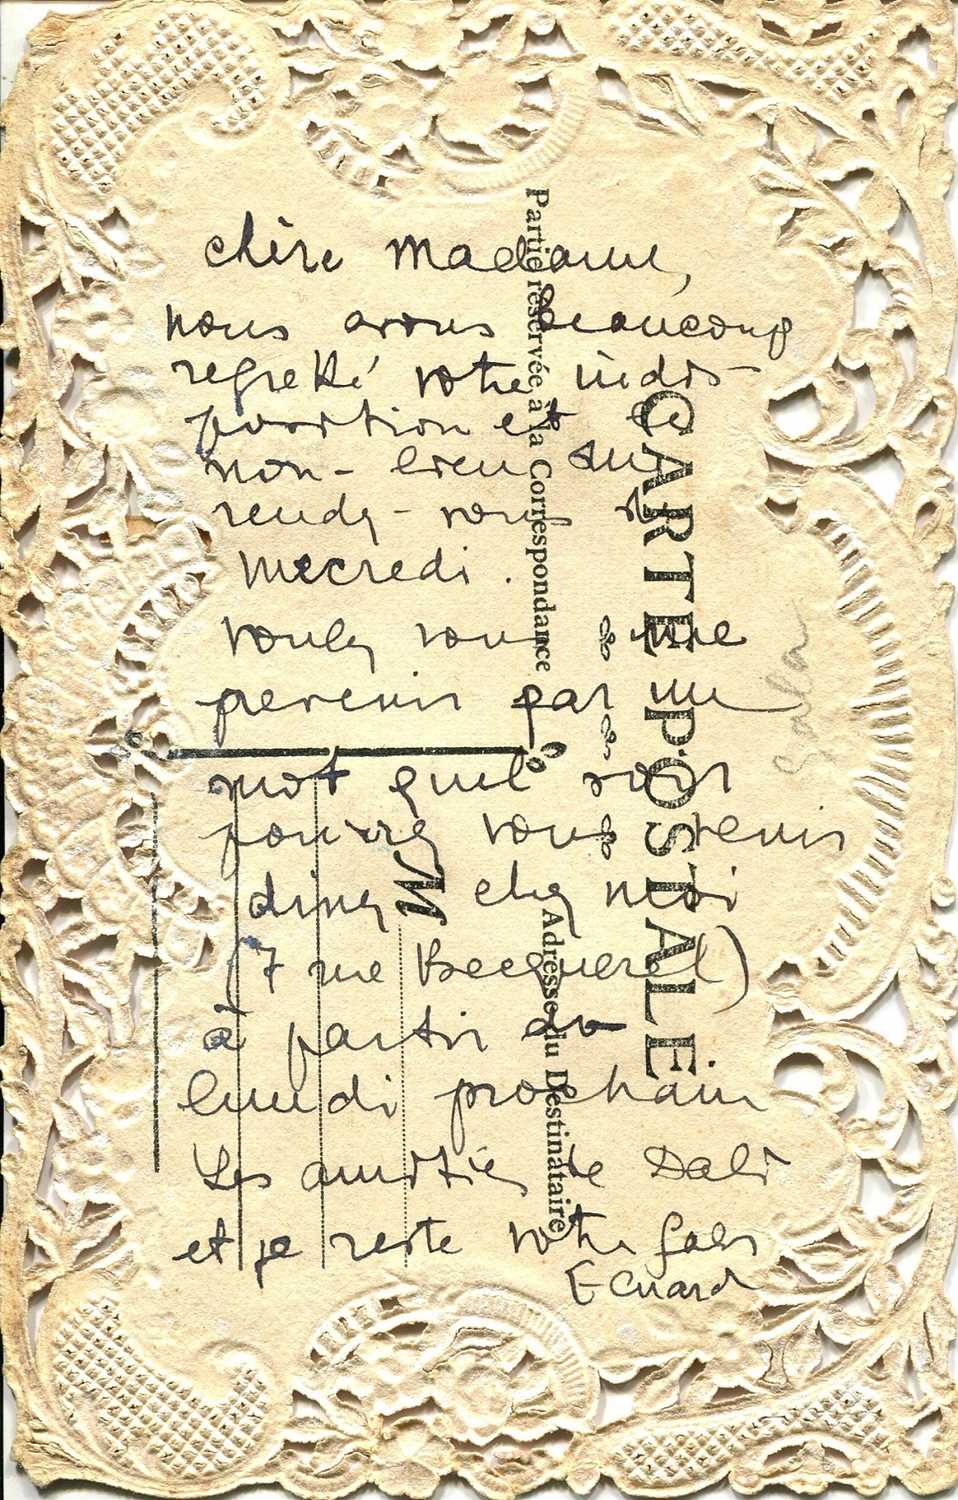 chère Madame,
nous avons beaucoup
regretté votre indis-
position et le
non-lieu du
rendez-vous de
mecredi.
voulez vous me
prevenir par un
mot quel soir
pourrez vous venir
diner chez moi
(7 rue Becquerel)
à partir du
lundi prochain
Les amitiés de Dali
et je reste votre Gala
Eluard
Gala
CARTE POSTALE
Partie réservée à la Correspondance
Adresse du Destinataire
M